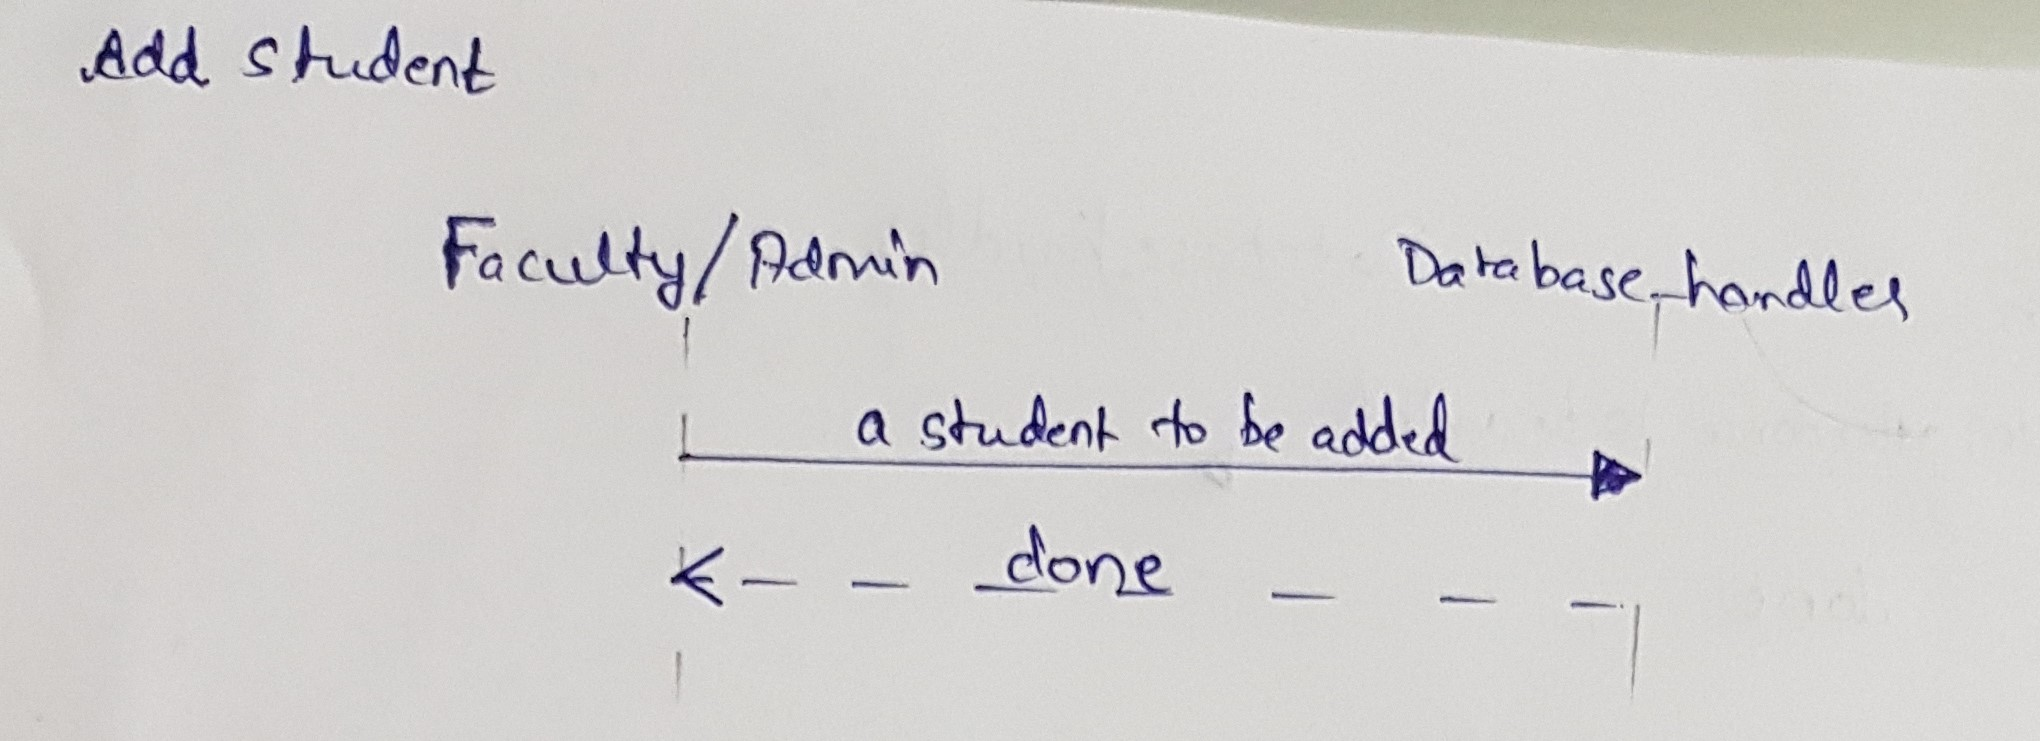 Add student
Faculty/Admin
Database_handles
a student to be added
done